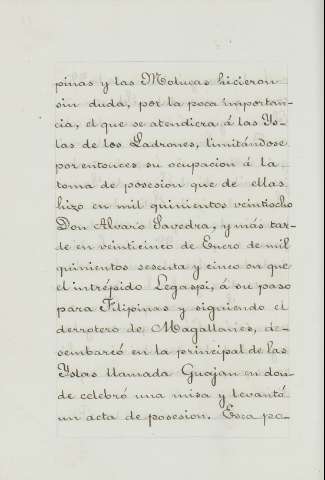 pinas y las Molucas hicieron
sin duda, por la poca importan-
cia, el que se atendiera á las Ys-
las de los Ladrones, limitándose
por entonces su ocupacion á la
toma de posesion que de ellas
hizo en mil quinientos veintiocho
Don Alvaro Savedra, y más tar-
de en veinticinco de Enero de mil
quinientos sesenta y cinco en que
el intrépido Legaspi, á su paso
para Filipinas y siguiendo el
derrotero de Magallanes, de-
sembarcó en la principal de las
Yslas llamada Guajan en don-
de celebró una misa y levantó
un acta de posesion. Esca pa-